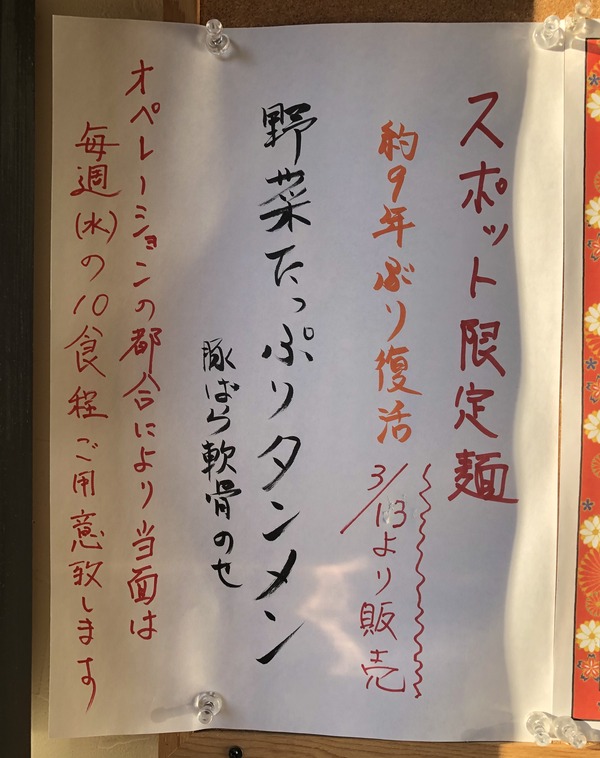 スポット限定麺
約9年ぶり復活
3/13より販売
野菜たっぷりタンメン
豚ばら軟骨のせ
オペレーションの都合により当面は
毎週(水)の10食程ご用意致します